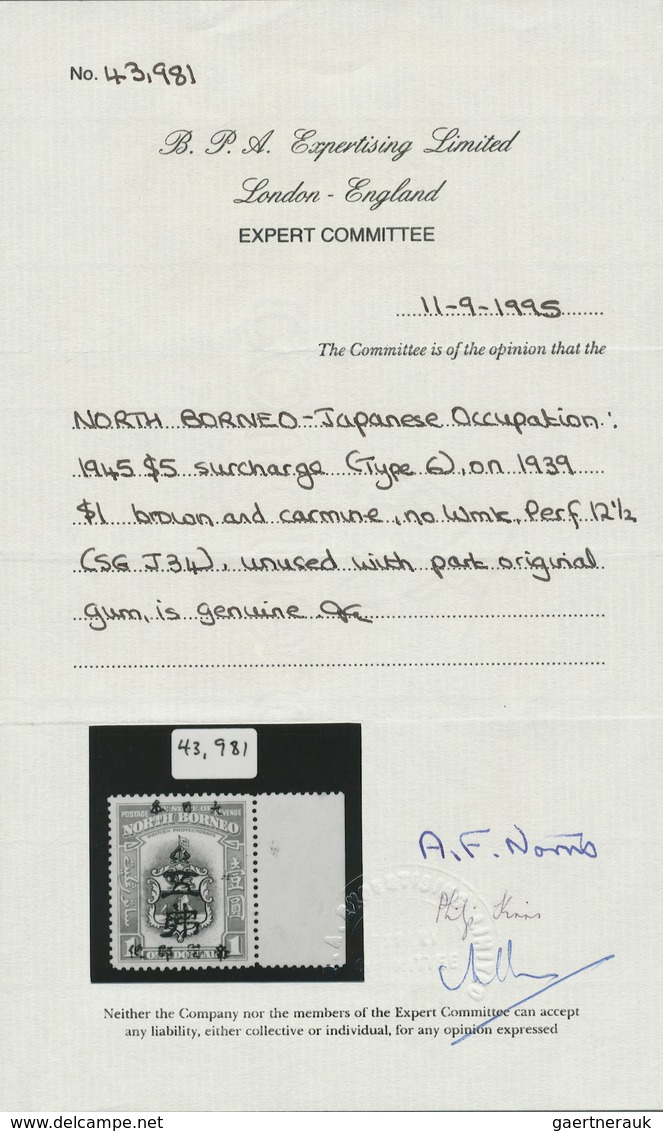 No. 43,981
B. P. A. Expertising Limited
London - England
EXPERT COMMITTEE
11-9-1995
The Committee is of the opinion that the
NORTH BORNEO - Japanese Occupation:
1945 $5 surcharge (Type 6), on 1939
$1 brown and carmine, no Wmk, Perf. 12½
(SG J34), unused with part original
gum, is genuine.
43,981
POSTAGE REVENUE
NORTH BORNEO
BRITISH PROTECTORATE
壹圓
1 ONE DOLLAR 1
A.F. Norris
Neither the Company nor the members of the Expert Committee can accept
any liability, either collective or individual, for any opinion expressed
gaertnerauk